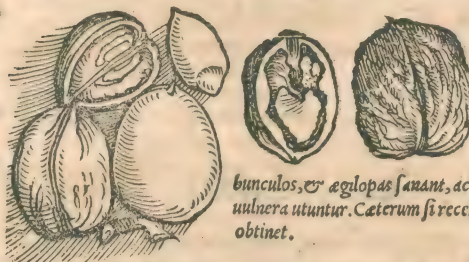 bunculos, & ægilopas sanant, ac
uulnera utuntur. Cæterum si rece
obtinet.